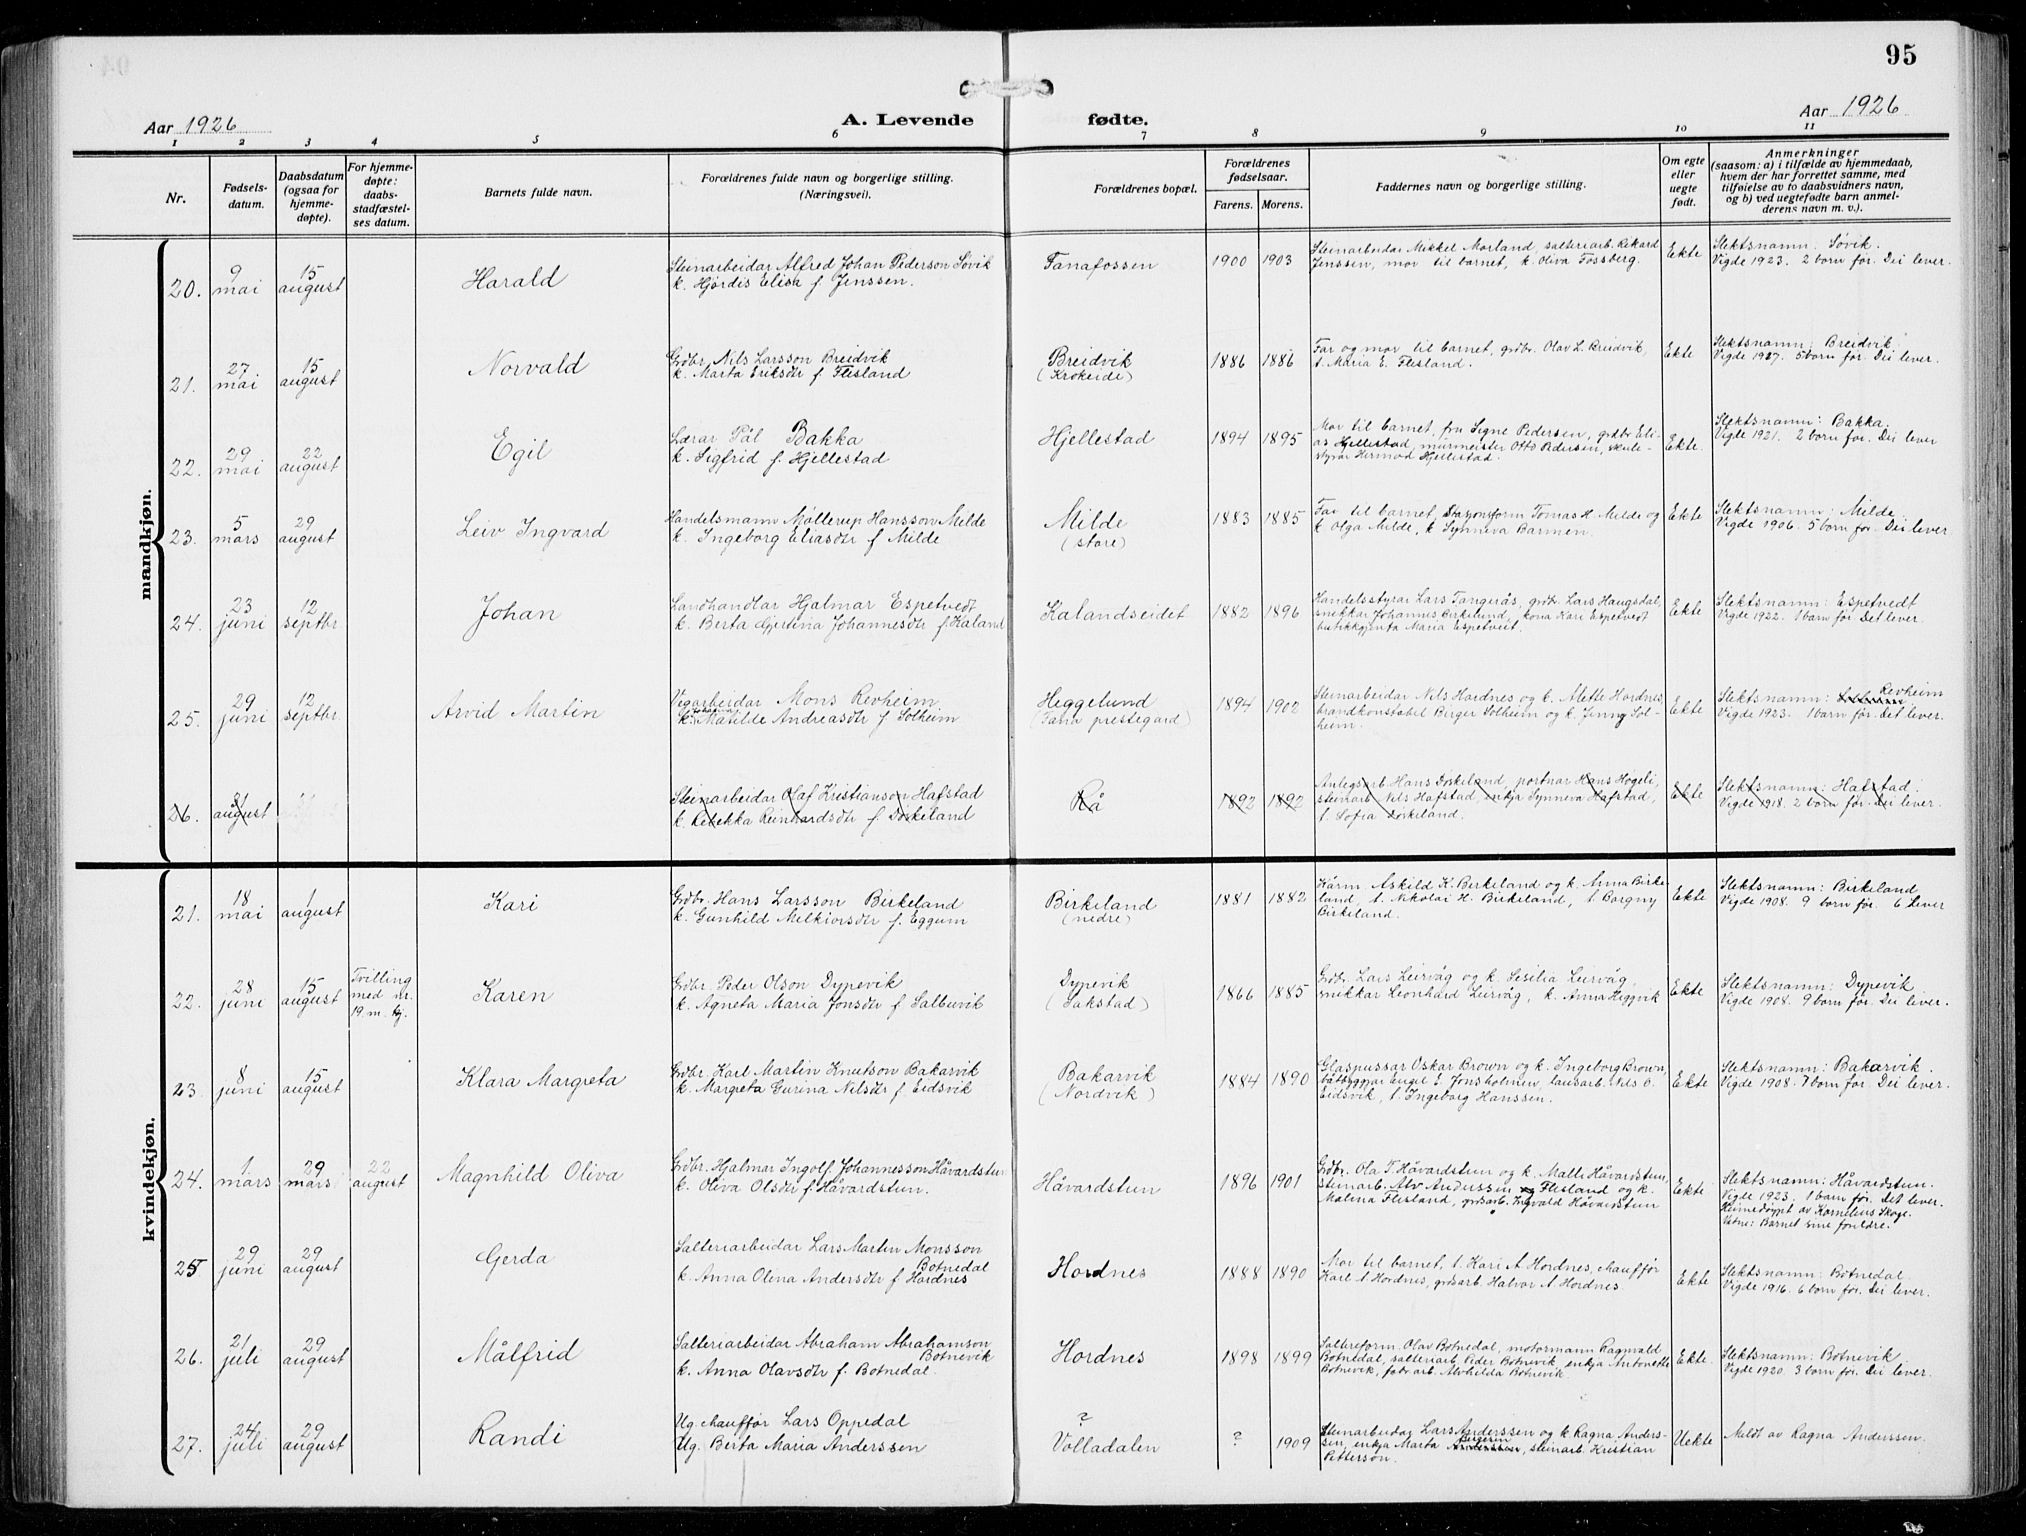 95
Aar 1926
A. Levende fødte.
Aar 1926
1 2 3 4 5 6 7 8 9 10 11
Nr.
Fødsels-
datum.
Daabsdatum
(ogsaa for
hjemme-
døpte).
For hjemme-
døpte:
daabs-
stadfæstel-
ses datum.
Barnets fulde navn.
Forældrenes fulde navn og borgerlige stilling.
(Næringsvei).
Forældrenes bopæl.
Forældrenes
fødselsaar.
Farens. Morens.
Faddernes navn og borgerlige stilling.
Om egte
eller
uegte
født.
Anmerkninger
(saasom: a) i tilfælde av hjemmedaab,
hvem der har forrettet samme, med
tilføielse av to daabsvidners navn,
og b) ved uegtefødte barn anmel-
derens navn m. v.).
mandkjøn.
20.
9
mai
15
august
Harald
Steinarbeidar Alfred Johan Pederson Søvik
k. Hjørdis Elisa f Jenssen.
Fanafossen
1900 1903
Steinarbeidar Mikkel Morland, salteriarb. Rikard
Jenssen, mor til barnet, k. Oliva Fossberg.
Ekte
Slektsnamn: Søvik.
Vigde 1923. 2 born før. Dei lever.
21.
27
mai
15
august
Norvald
Grdbr. Nils Larsson Breidvik
k. Marta Eriksdtr f Flesland
Breidvik
(Krokeide)
1886 1886
Far og mor til barnet, grdbr. Olav L. Breidvik,
t. Maria E. Flesland.
Ekte
Slektsnamn: Breidvik.
Vigde 1927. 5 born før. Dei lever.
22.
29
mai
22
august
Egil
Lærar Pål Bakka
k. Sigfrid f. Hjellestad
Hjellestad
1894 1895
Mor til barnet, fru Signe Pedersen, grdbr Eli-
as Hjellestad, murmeister Otto Pedersen, skule-
styrar Hermod Hjellestad.
Ekte.
Slektsnamn: Bakka.
Vigde 1921. 2 born før. Dei lever
23.
5
mars
29
august
Leiv Ingvard
Handelsmann Møllerup Hansson Milde
k. Ingeborg Eliasdtr f Milde
Milde
(store)
1883 1885
Far til barnet, Tomas H. Milde og
k Olga Milde, k Synneva Barmen.
Ekte
Slektsnamn: Milde
Vigde 1906. 5 born før. Dei lever
24.
23
juni
12
septbr.
Johan
Landhandlar Hjalmar Espetvedt
k. Berta Gjertina Johannesdtr f Kaland
Kalandseidet
1882 1896
Handelsstyrar Lars Tangerås, grdbr. Lars Haugsdal,
snekkar Johannes Birkelund, kona Kari Espetvedt
butikkgjenta Maria Espetveit.
Ekte
Slektsnamn: Espetvedt
Vigde 1922. 1 barn før. Det lever.
25.
29
juni
12
septbr.
Arvid Martin
Vegarbeidar Mons Revheim
k. Matilde Andreasdtr f Solheim
Heggelund
(Fana prestegard)
1894 1902
Steinarbeidar Nils Hordnes og k. Alette Hordnes,
brandkonstabel Birger Solheim og k. Jenny Sol-
heim.
Ekte
Slektsnamn: Revheim
Vigde 1923. 1 barn før. Det lever.
26.
21
august
Steinarbeidar Olaf Kristianson Hafstad
k. Rebekka Reinhardsdtr f Dyrkeland
Rå
1892 1892
Anlegsarb. Hans Dyrkeland, portnar Hans Høgeli,
steinarb Nils Hafstad, enkja Synneva Hafstad,
t. Sofia Dyrkeland.
Ekte
Slektsnamn: Hafstad.
Vigde 1918. 2 born før. Dei lever.
kvindekjøn.
21.
18
mai
1
august
Kari
Grdbr. Hans Larsson Birkeland
k. Gunhild Melkiorsdtr f. Eggum
Birkeland
(nedre)
1881 1882
Kårm. Askild K. Birkeland og k. Anna Birke-
land, t. Nikolai H. Birkeland, t. Borgny
Birkeland.
Ekte
Slektsnamn: Birkeland
Vigde 1908. 9 born før. 6 lever
22.
28
juni
15
august
Tvilling
med nr.
19. m. kj.
Karen
Grdbr. Peder Olson Dypevik
k. Agneta Maria Jonsdtr f Salbuvik
Dypevik
(Sakstad)
1866 1885
Grdbr. Lars Leirvåg og k. Sesilia Leirvåg,
snikkar Leonhard Leirvåg, k. Anna Heggvik
Ekte
Slektsnamn: Dypevik
Vigde 1908. 9 born før. Dei lever.
23.
8
juni
15
august
Klara Margreta
Grdbr. Karl Martin Knutson Bakarvik
k. Margreta Gurina Nilsdtr f Eidsvik
Bakarvik
(Nordvik)
1884 1890
Glaspussar Oskar Brown og k. Ingeborg Brown,
båtbyggjar Engel E. Jonsholmen, lausarb. Nils O.
Eidsvik, t. Ingeborg Hanssen.
Ekte
Slektsnamn: Bakarvik.
Vigde 1908. 7 born før. Dei lever.
24.
1
mars
29
mars
22
august
Magnhild Oliva
Grdbr. Hjalmar Ingolf Johannesson Håvardstun
k. Oliva Olsdtr f. Håvardstun.
Håvardstun
1896 1901
Grdbr. Ola T. Håvardstun og k. Malli Håvardstun,
steinarb. Alv Anderssen Flesland og k.
Malena Flesland, grdsarb. Ingvald Håvardstun
Ekte
Slektsnamn: Håvardstun.
Vigde 1923. 1 barn før. Det lever.
Heimedøypt av Kornelius Skoge.
Vitne: Barnet sine foreldre.
25
29
juni
29
august
Gerda
Salteriarbeidar Lars Martin Monsson
Botnedal
k. Anna Olena Andersdtr f Hordnes
Hordnes
1888 1890
Mor til barnet, t. Kari A Hordnes, chauffør
Karl A Hordnes, grdsarb. Halvor A Hordnes.
Ekte
Slektsnamn: Botnedal.
Vigde 1916. 6 born før. Dei lever.
26.
21
juli
29
august
Målfrid
Salteriarbeidar Abraham Abrahamson
Botnevik
k. Anna Olavsdtr f. Botnedal.
Hordnes
1898 1899
Salteriform. Olav Botnedal, motormann Ragnvald
Botnedal, salteriarb. Peder Botnevik, enkja Antonette
Botnevik, fabr.arb. Alvhilda Botnevik.
Ekte.
Slektsnamn: Botnevik.
Vigde 1920. 3 born før. Dei lever.
27.
24
juli
29
august
Randi
Ug. chauffør Lars Oppedal
Ug. Berta Maria Anderssen
?
Volladalen
? 1909
Steinarbeidar Lars Anderssen og k Ragna Anders-
sen, enkja Marta Anderssen, steinarb. Kristian
Petterson.
Uekte
Meldt av Ragna Anderssen.